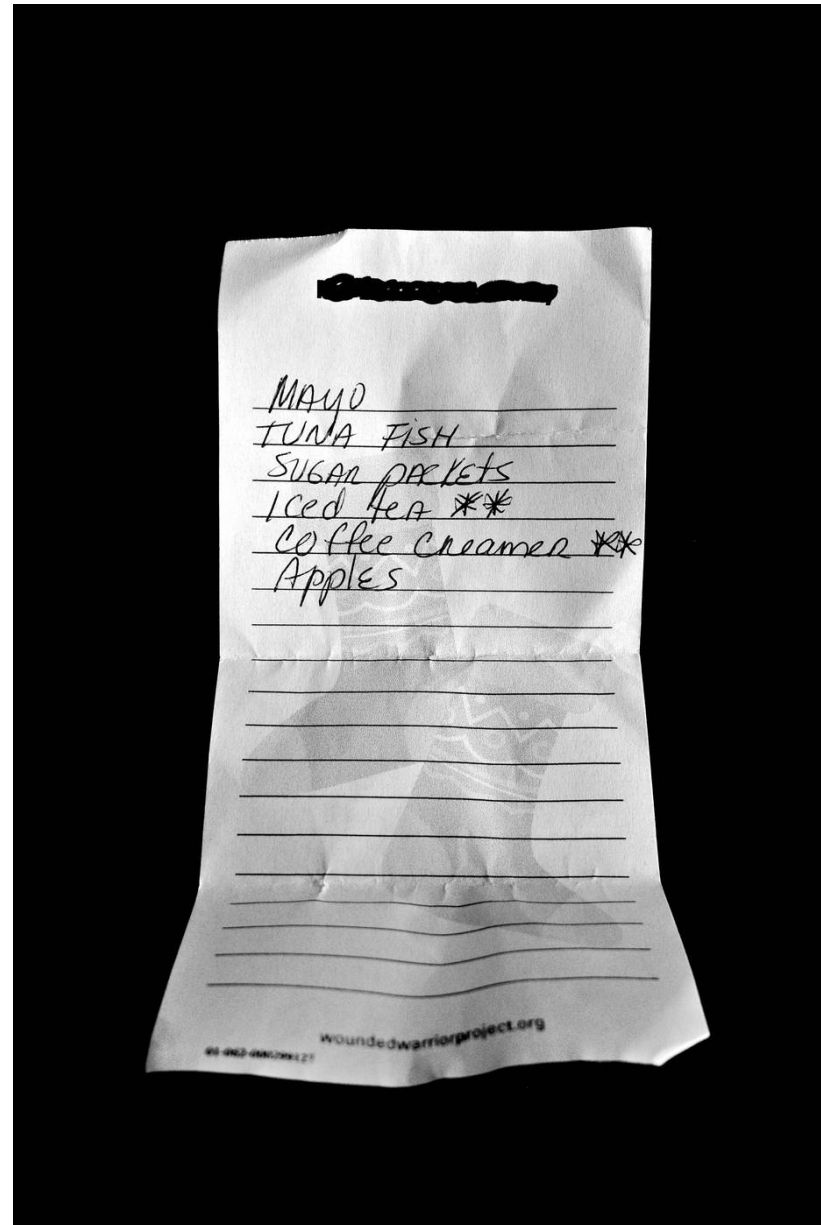 MAYO
TUNA FISH
SUGAR PACKETS
Iced teA **
Coffee Creamer **
Apples
woundedwarriorproject.org